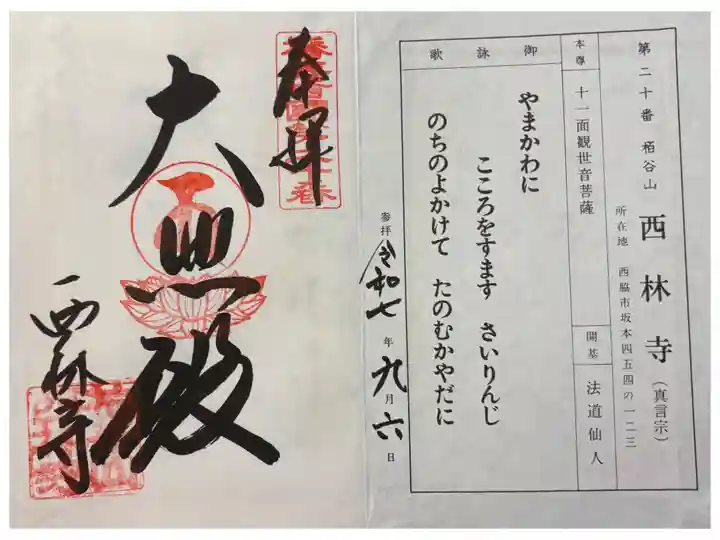 第二十番 栢谷山 西林寺(真言宗)
所在地 西脇市坂本四五四の一二三
本尊 十一面観世音菩薩
開基 法道仙人
御詠歌
やまかわに
こころをすます さいりんじ
のちのよかけて たのむかやだに
参拝 令和七年九月六日
奉拝
大悲殿
西林寺